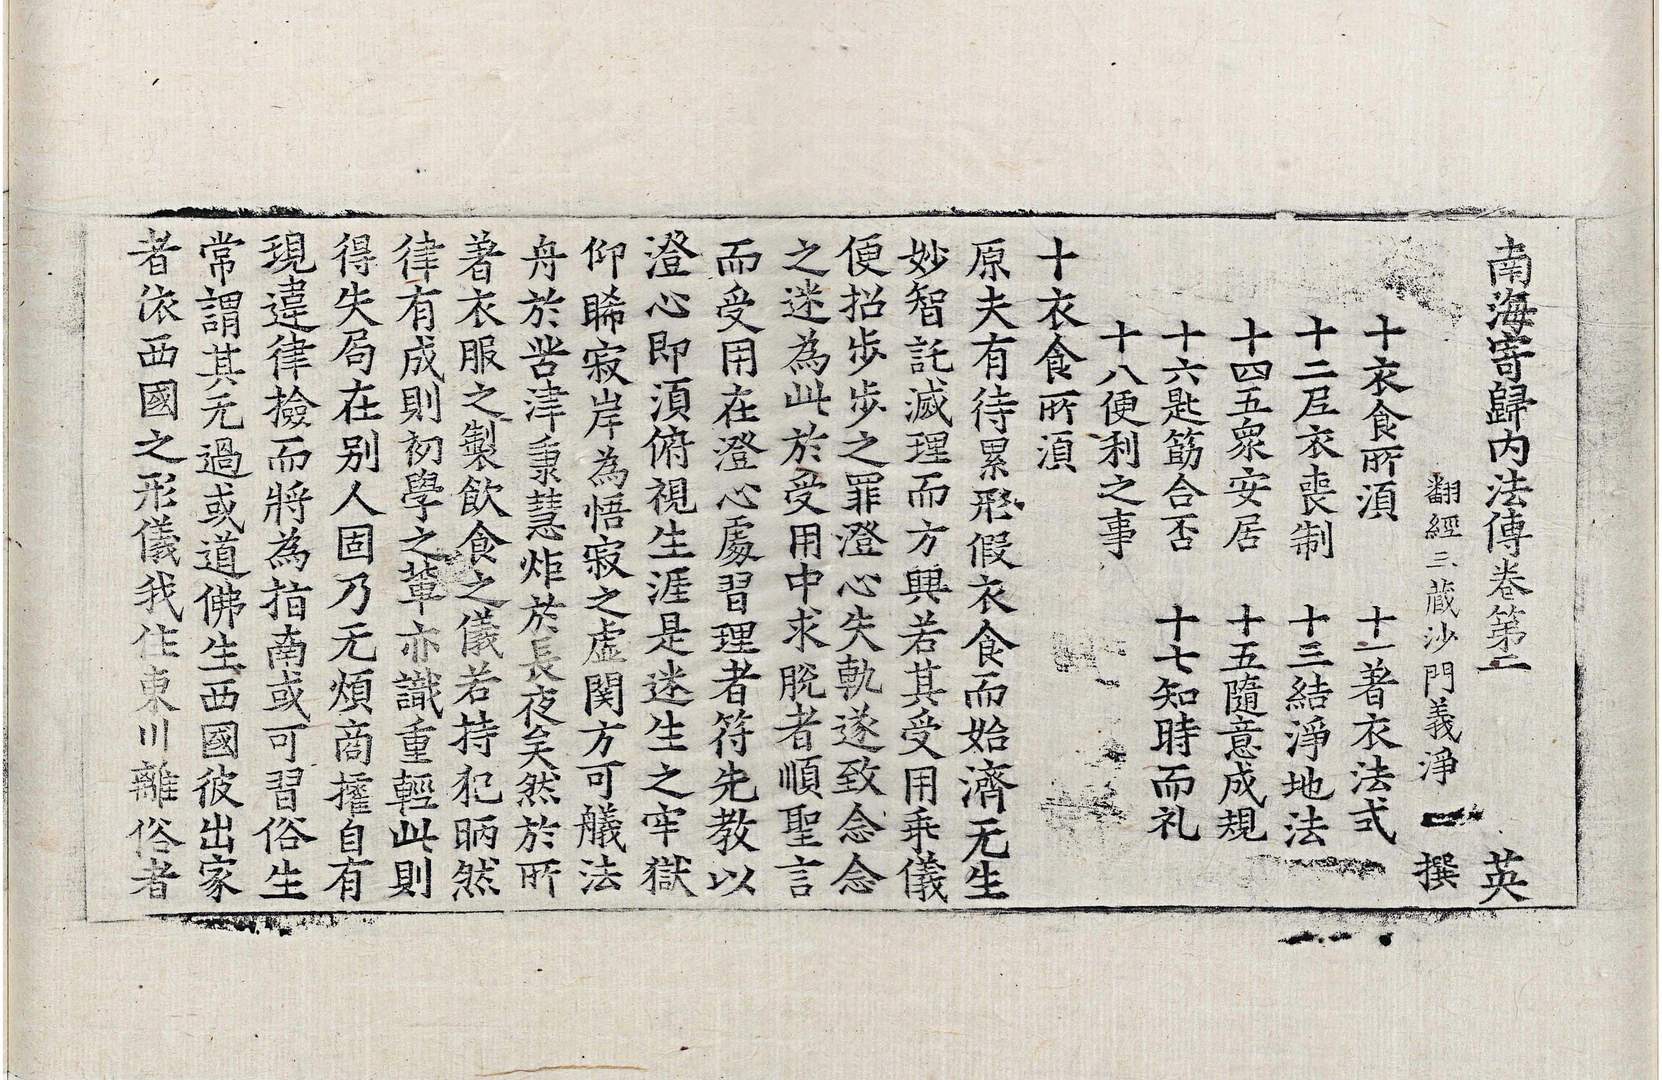 南海寄歸內法傳卷第二 英
翻經三藏沙門義淨 撰
十衣食所湏 十一著衣法式
十二𡰱衣喪制 十三結淨地法
十四五衆安居 十五隨意成規
十六匙筯合否 十七知時而礼
十八便利之事
十衣食所湏
原夫有待累形假衣食而始濟无生
妙智託滅理而方興若其受用乖儀
便招步步之罪澄心失軌遂致念念
之迷為此於受用中求脫者順聖言
而受用在澄心處習理者符先教以
澄心即湏俯視生涯是迷生之牢獄
仰睎寂岸為悟寂之虛関方可艤法
舟於苦津秉慧炬於長夜矣然於所
著衣服之製飲食之儀若持犯昞然
律有成則初學之軰亦識重輕此則
得失局在别人固乃无煩商搉自有
現違律撿而將為指南或可習俗生
常謂其无過或道佛生西國彼出家
者依西國之形儀我住東川離俗者